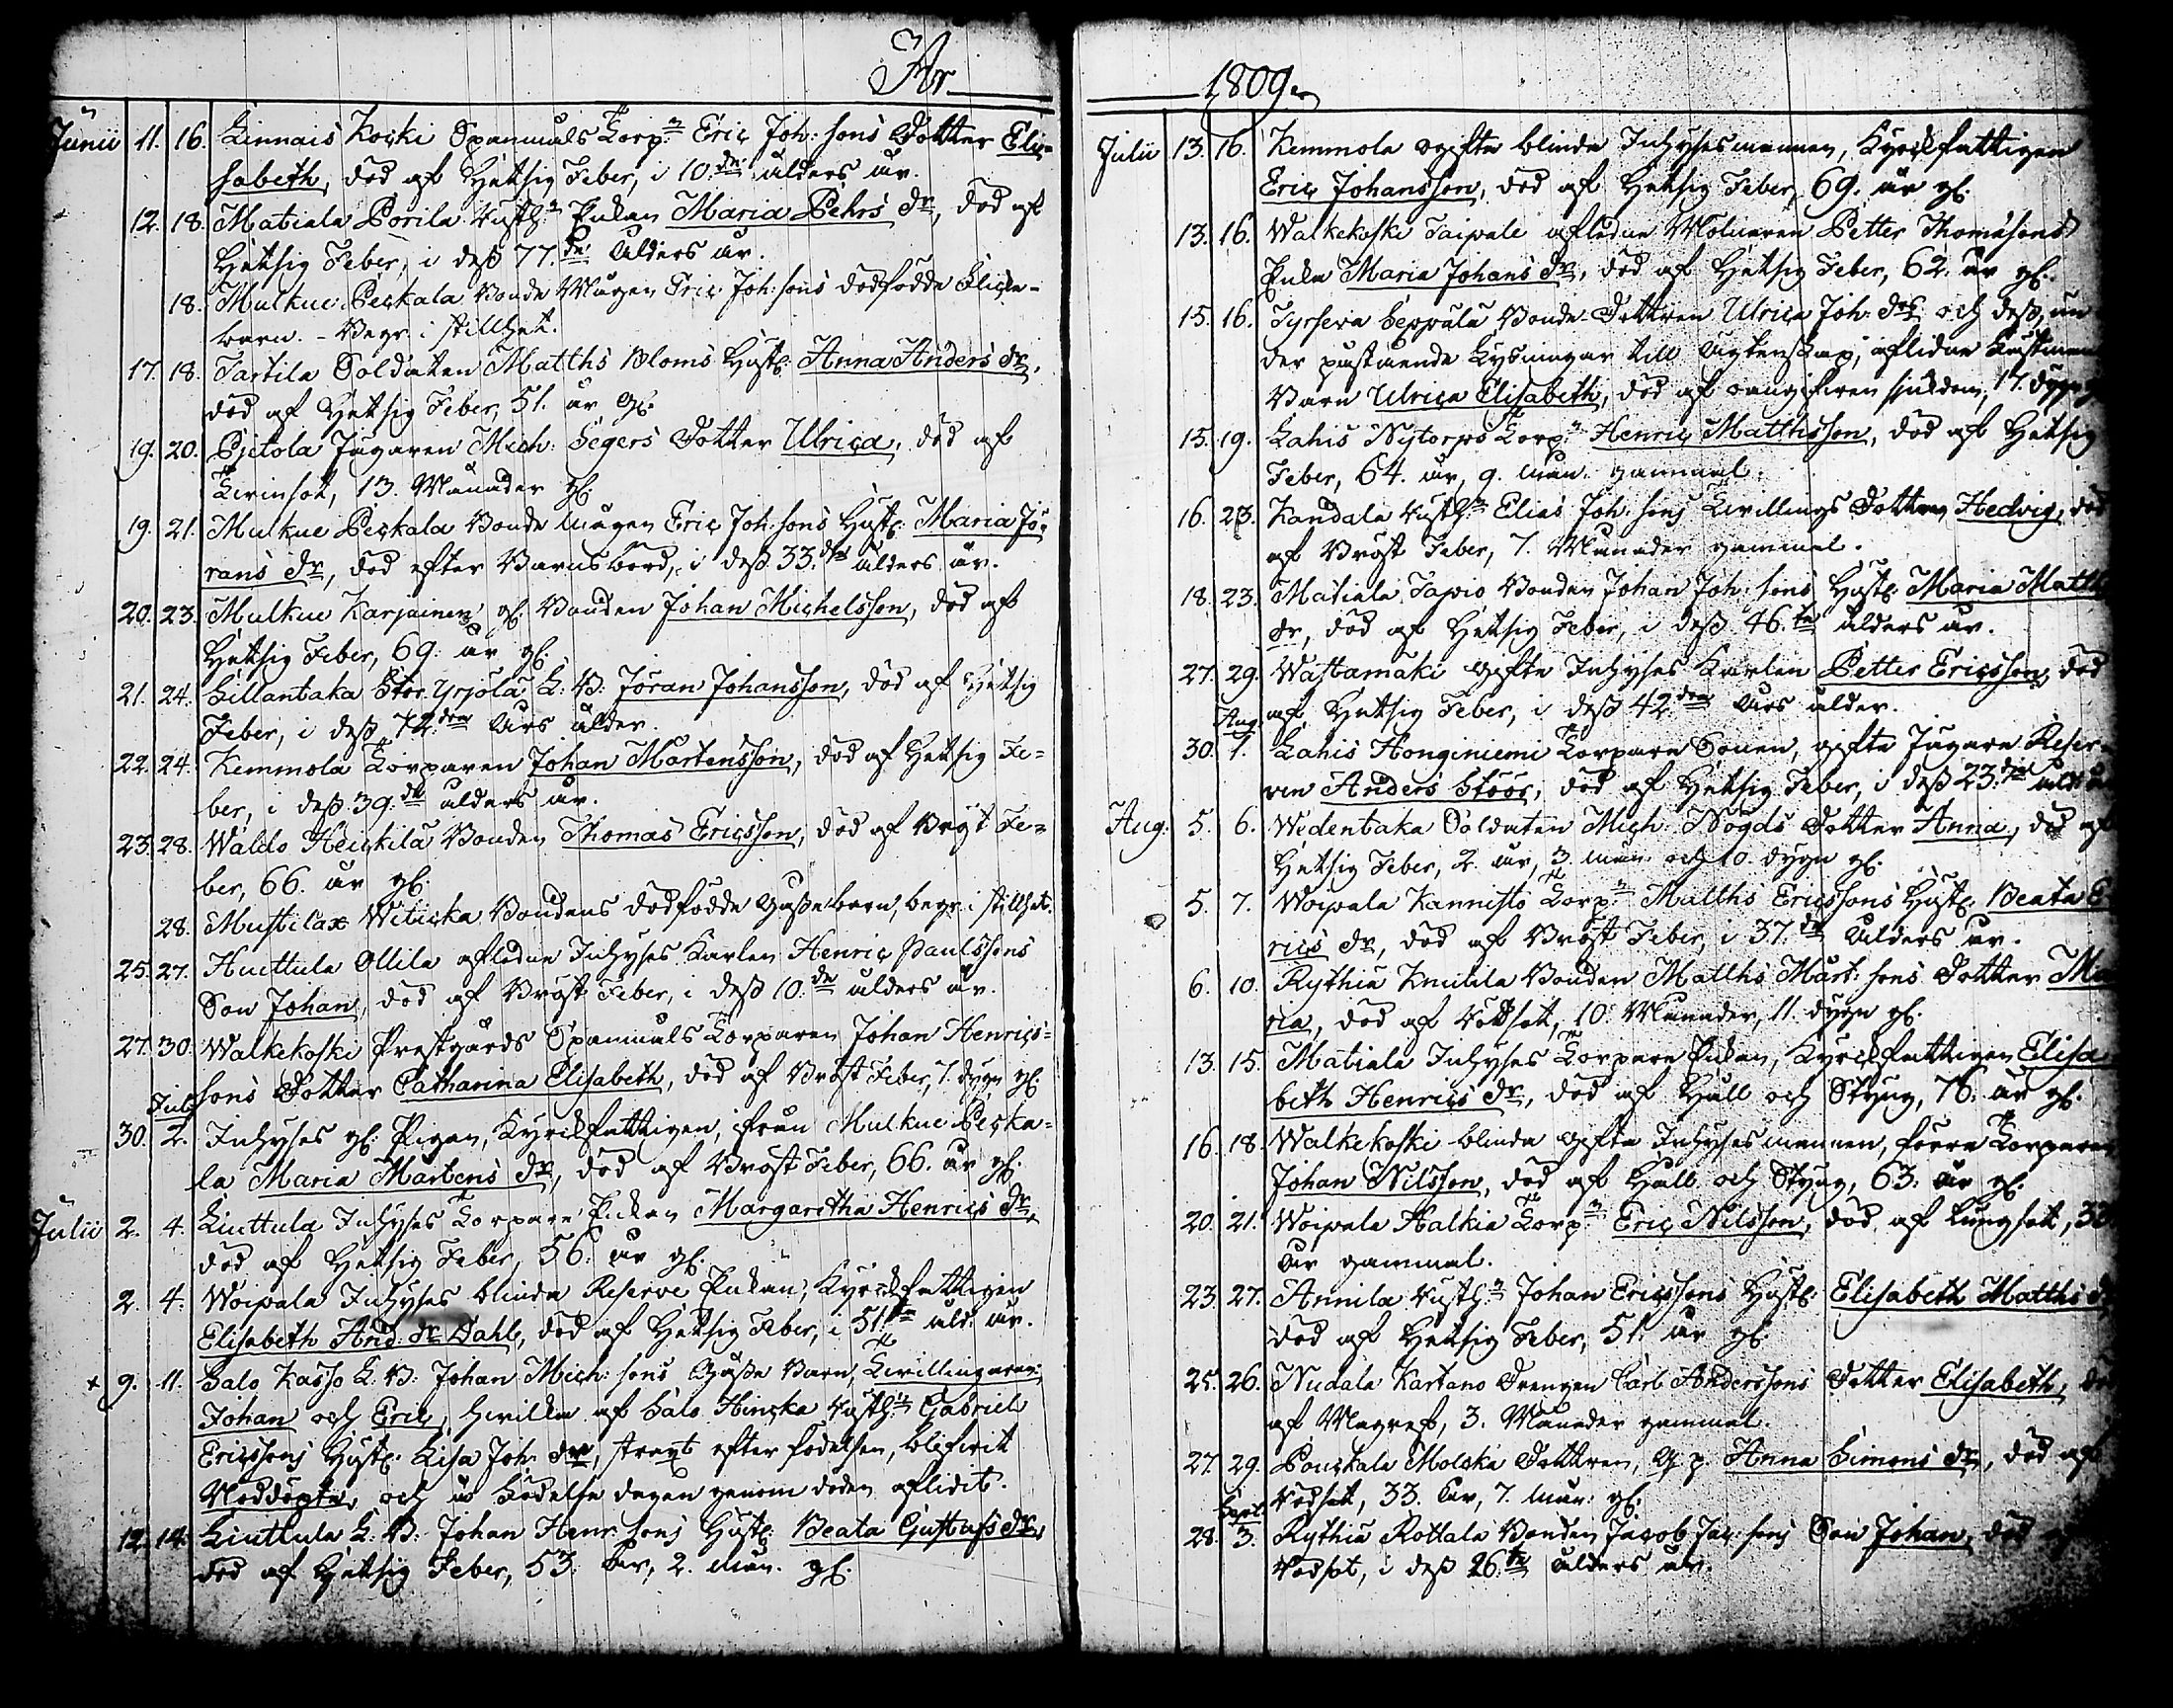 År
Junii 11. 16. Linnais Koski Spanmåls Torp:n Eric Joh:sons Dotter Eli-
sabeth, död af Hetsig Feber, i 10:de ålders år.
12. 18. Matiala Porila Rusth:n Enkan Maria Pehrs dr, död af
Hetsig Feber, i dess 77:de Ålders år.
18. Mulkue Peckala Bonde Mågen Eric Joh:sons dödfödde Flicke-
barn. - Begr: i stillhet.
17. 18. Tartila Soldaten Matths Bloms Hust: Anna Anders dr,
död af Hetsig Feber, 51. år gl:
19. 20. Pjetola Jägaren Mich: Segers Dotter Ulrica, död af
Tvinsot, 13. Månader gl:
19. 21. Mulkue Peckala Bonde Mågen Eric Joh:sons Hust: Maria Jö-
rans dr, död efter Barnsbörd, i dess 33:dje ålders år.
20. 23. Mulkue Karjainen gl: Bonden Johan Michelsson, död af
Hetsig Feber, 69. år gl:
21. 24. Sillantaka Stor Yrjölä L: B: Jöran Johansson, död af Hetsig
Feber, i dess 72:dra Års ålder.
22. 24. Kemmola Torparen Johan Mårtensson, död af Hetsig Fe-
ber, i dess 39:de ålders år.
23. 28. Waldo Heickilä Bonden Thomas Ericsson, död af Bröst Fe-
ber, 66. år gl:
28. Mustilax Witicka Bondens dödfödde Gossebarn, begr: i stillhet.
25. 27. Huittula Ollila aflidne Inhyses Karlen Henric Paulssons
Son Johan, död af Bröst Feber, i dess 10:de ålders år.
27. 30. Walkekoski Prestgårds Spanmåls Torparen Johan Henrics-
sons Dotter Catharina Elisabeth, död af Bröst Feber, 7. dygn gl:
Julii
30. 2. Inhyses gl: Pigan, Kyrckfattigen, ifrån Mulkue Pecka-
la Maria Mårtens dr, död af Bröst Feber, 66. år gl:
Julii 2. 4. Liuttula Inhyses Torpare Enkan Margaretha Henrics dr,
död af Hetsig Feber, 56. år gl:
2. 4. Woipala Inhyses blinda Reserve Enkan, Kyrckfattigen
Elisabeth And: dr Dahl, död af Hetsig Feber, i 51:ta åld: år.
x 9. 11. Salo Kasso L: B: Johan Mich:sons Gosse Barn, Tvillingarne
Johan och Eric, hvilka af Salo Hincka Rusth: Gabriel
Ericssons Hust: Lisa Joh: dr, straxt efter födelsen, blifvit
Nöddöpta, och å Födelse dagen genom döden aflidit.
12. 14. Liuttula L: B: Johan Henr:sons Hust: Beata Gustafs dr,
död af Hetsig Feber, 53. År, 2. Mån. gl:
1809.
Julii 13. 16. Kemmola ogifta blinda Inhysesmannen, Kyrckfattigen
Eric Johansson, död af Hetsig Feber, 69. år gl:
13. 16. Walkekoski Taipale aflidne Molnaren Petter Thomæsons
Enka Maria Johans dr, död af Hetsig Feber, 62. år gl:
15. 16. Tyrisevä Seppälä Bonde-Dottren Ulrica Joh: drs och dess, un
der påstående Lysningar till Ägtenskap, aflidne Fästman
Barn Ulrica Elisabeth, död af oangifven sjukdom, 17. dygn
15. 19. Lahis Nytorps Torp:n Henric Matthsson, död af Hetsig
Feber, 64. år, 9. mån. gammal.
16. 23. Kandala Rusth:n Elias Joh:sons Tvillings Dottren Hedvig, död
af Bröst Feber, 7. Månader gammal.
18. 23. Matiala Tapio Bonden Johan Joh:sons Hust: Maria Matth
dr, död af Hetsig Feber, i dess 46:te ålders år.
27. 29. Wastamäki gifta Inhyses Karlen Petter Ericsson, död
af Hetsig Feber, i dess 42:dra Års ålder.
Aug.
30. 1. Lahis Honginiemi Torpare Sonen, gifta Jägare Reser-
ven Anders Stöör, död af Hetsig Feber, i dess 23:dje åld: år
Aug: 5. 6. Wedentaka Soldaten Mich: Nögds Dotter Anna, död af
Hetsig Feber, 2. år, 3. mån. och 10. dygn gl:
5. 7. Woipala Kannisto Torp:n Matths Ericssons Hust: Beata E-
rics dr, död af Bröst Feber, i 37:de Ålders år.
6. 10. Rythiä Knuttila Bonden Matths Mårt:sons Dotter Ma
ria, död af Rötsot, 10. Månader, 11. dygn gl:
13. 15. Matiala Inhyses Torpare Enkan, Kyrckfattigen Elisa
beth Henrics dr, död af Håll och Styng, 76. år gl:
16. 18. Walkekoski blinda gifta Inhysesmannen, förra Torparen
Johan Nilsson, död af Håll och Styng, 63. år gl:
20. 21. Woipala Halkia Torp:n Eric Nilsson, död af Lungsot, 33
År gammal.
23. 27. Annila Rusth:n Johan Ericssons Hust: Elisabeth Matths dr
död af Hetsig Feber, 51. år gl:
25. 26. Nudala Kartano Drengen Carl Anderssons Dotter Elisabeth, död
af Magref, 3. Månader gammal.
27. 29. Pouckala Molska Dottren, G. p. Anna Simons dr, död af
Rödsot, 33. År, 7. Mån. gl:
Sept.
28. 3. Rythiä Rottala Bonden Jacob Jac:sons Son Johan, död
Rödsot, i dess 26:te Ålders år.